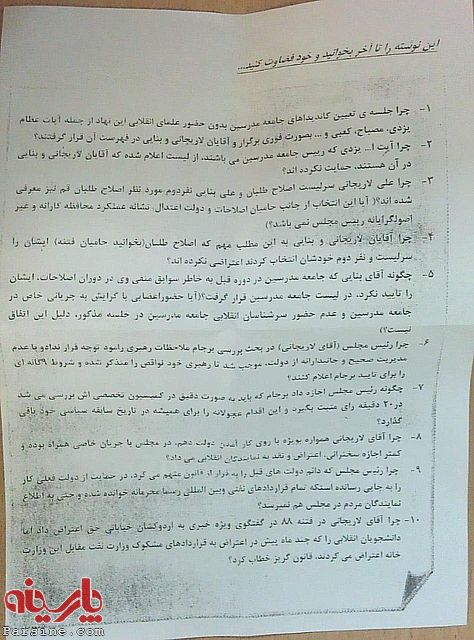 این نوشته را تا آخر بخوانید و خود قضاوت کنید...
۱- چرا جلسه ی تعیین کاندیداهای جامعه مدرسین بدون حضور علمای انقلابی این نهاد از جمله آیات عظام
یزدی، مصباح، کعبی و ... بصورت فوری برگزار و آقایان لاریجانی و بنایی در فهرست آن قرار گرفتند؟
۲- چرا آیت ا... یزدی که رییس جامعه مدرسین می باشند، از لیست اعلام شده که آقایان لاریجانی و بنایی
در آن هستند، حمایت نکرده اند؟
۳- چرا علی لاریجانی سرلیست اصلاح طلبان و علی بنایی نفردوم مورد نظر اصلاح طلبان قم نیز معرفی
شده اند؟( آیا این انتخاب از جانب حامیان اصلاحات و دولت اعتدال، نشانه عملکرد محافظه کارانه و غیر
اصولگرایانه رییس مجلس نمی باشد؟)
۴- چرا آقایان لاریجانی و بنایی به این مطلب مهم که اصلاح طلبان(بخوانید حامیان فتنه) ایشان را
سرلیست و نفر دوم خودشان انتخاب کردند اعتراضی نکرده اند؟
۵- چگونه آقای بنایی که جامعه مدرسین در دوره قبل به خاطر سوابق منفی وی در دوران اصلاحات، ایشان
را تایید نکرد، در لیست جامعه مدرسین قرار گرفت؟(آیا حضوراعضایی با گرایش به جریانی خاص در
جامعه مدرسین و عدم حضور سرشناسان انقلابی جامعه مدرسین در جلسه مذکور، دلیل این اتفاق
نیست؟)
۶- چرا رئیس مجلس (آقای لاریجانی) در بحث بررسی برجام ملاحظات رهبری رامورد توجه قرار ندادو با عدم
مدیریت صحیح و جانبدارانه از دولت، موجب شد تا رهبری خود نواقص را متذکر شده و شروط ۹گانه ای
را برای تایید برجام اعلام کنند؟
۷- چگونه رئیس مجلس اجازه داد برجام که باید به صورت دقیق در کمیسیون تخصصی اش بررسی می شد
در۲۰ دقیقه رای مثبت بگیرد و این اقدام عجولانه را برای همیشه در تاریخ سابقه سیاسی خود باقی
گذارد؟
۸- چرا آقای لاریجانی همواره بویژه با روی کار آمدن دولت دهم، در مجلس با جریان خاصی همراه بوده و
کمتر اجازه سخنرانی، اعتراض و نقد به نمایندگان انقلابی می داد؟
۹- چرا رئیس مجلس که دائم دولت های قبل را به فرار از قانون متهم می کرد، در حمایت از دولت فعلی کار
را به جایی رسانده استکه تمام قراردادهای نفتی وبین المللی رسما محرمانه خوانده شده و حتی به اطلاع
نمایندگان مردم در مجلس هم نمیرسد؟
۱۰- چرا آقای لاریجانی در فتنه ۸۸ در گفتگوی ویژه خبری به اردوکشان خیابانی حق اعتراض داد اما
دانشجویان انقلابی را که چند ماه پیش در اعتراض به قراردادهای مشکوک وزارت نفت مقابل این وزارت
خانه اعتراض می کردند، قانون گریز خطاب کرد؟
پارسینه
Parsine.com